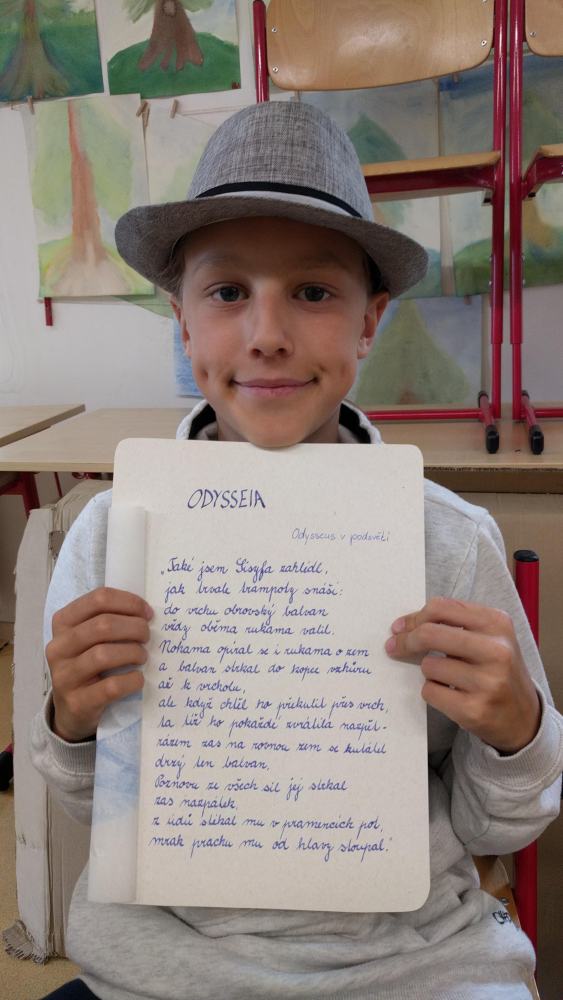 ODYSSEIA
Odysseus v podsvětí
„Také jsem Sisyfa zahlédl,
jak trvale trampoty snáší:
do vrchu obrovský balvan
vždy oběma rukama valil.
Nohama opíral se i rukama o zem
a balvan strkal do kopce vzhůru
až k vrcholu,
ale když chtěl ho překulit přes vrch,
ta tíž ho pokaždé zvrátila nazpět -
rázem zas na rovnou zem se kutálel
drzý ten balvan.
Poznovu ze všech sil jej strkal
zas nazpátek,
z údů stékal mu v pramencích pot,
mrak prachu mu od hlavy stoupal."